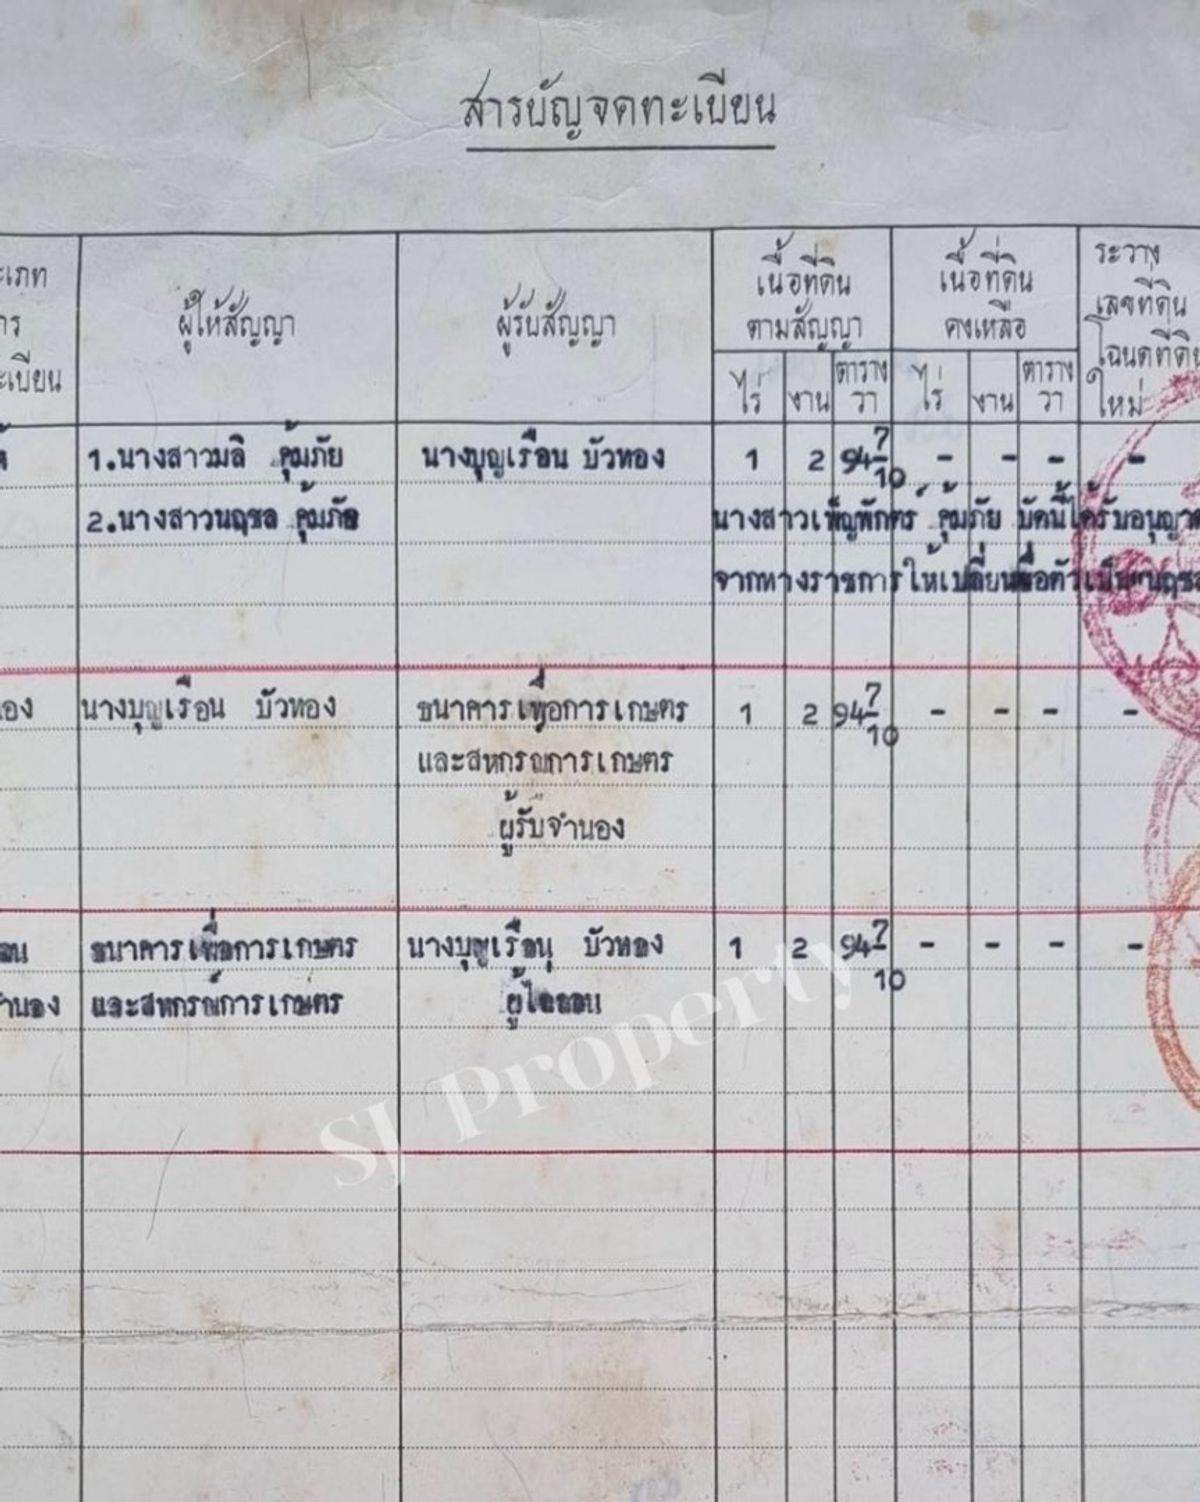 สารบัญจดทะเบียน
ผู้ให้สัญญา
ผู้รับสัญญา
เนื้อที่ดิน
ตามสัญญา
เนื้อที่ดิน
คงเหลือ
ระวาง
เลขที่ดิน
โฉนดที่ดิน
ใหม่
ไร่ งาน ตาราง วา ไร่ งาน ตาราง วา
1.นางสาวมลิ คุ้มภัย นางบุญเรือน บัวทอง 1 2 94 7/10 - - - -
2.นางสาวนฤชล คุ้มภัย นางสาวเพ็ญพักตร์ คุ้มภัย บัดนี้ได้รับอนุญาต
จากทางราชการให้เปลี่ยนชื่อตัวเป็น นฤชล
นางบุญเรือน บัวทอง ธนาคารเพื่อการเกษตร 1 2 94 7/10 - - - -
และสหกรณ์การเกษตร
ผู้รับจำนอง
ธนาคารเพื่อการเกษตร นางบุญเรือน บัวทอง 1 2 94 7/10 - - - -
และสหกรณ์การเกษตร ผู้ไถ่ถอน
SJ Property